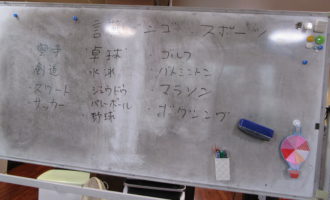 シゴ スポーツ
卓球
・ゴルフ
剣道
水泳
・バトミントン
・スケート
ジュウドウ
・マラソン
サッカー
バレーボール
・ボクシング
野球